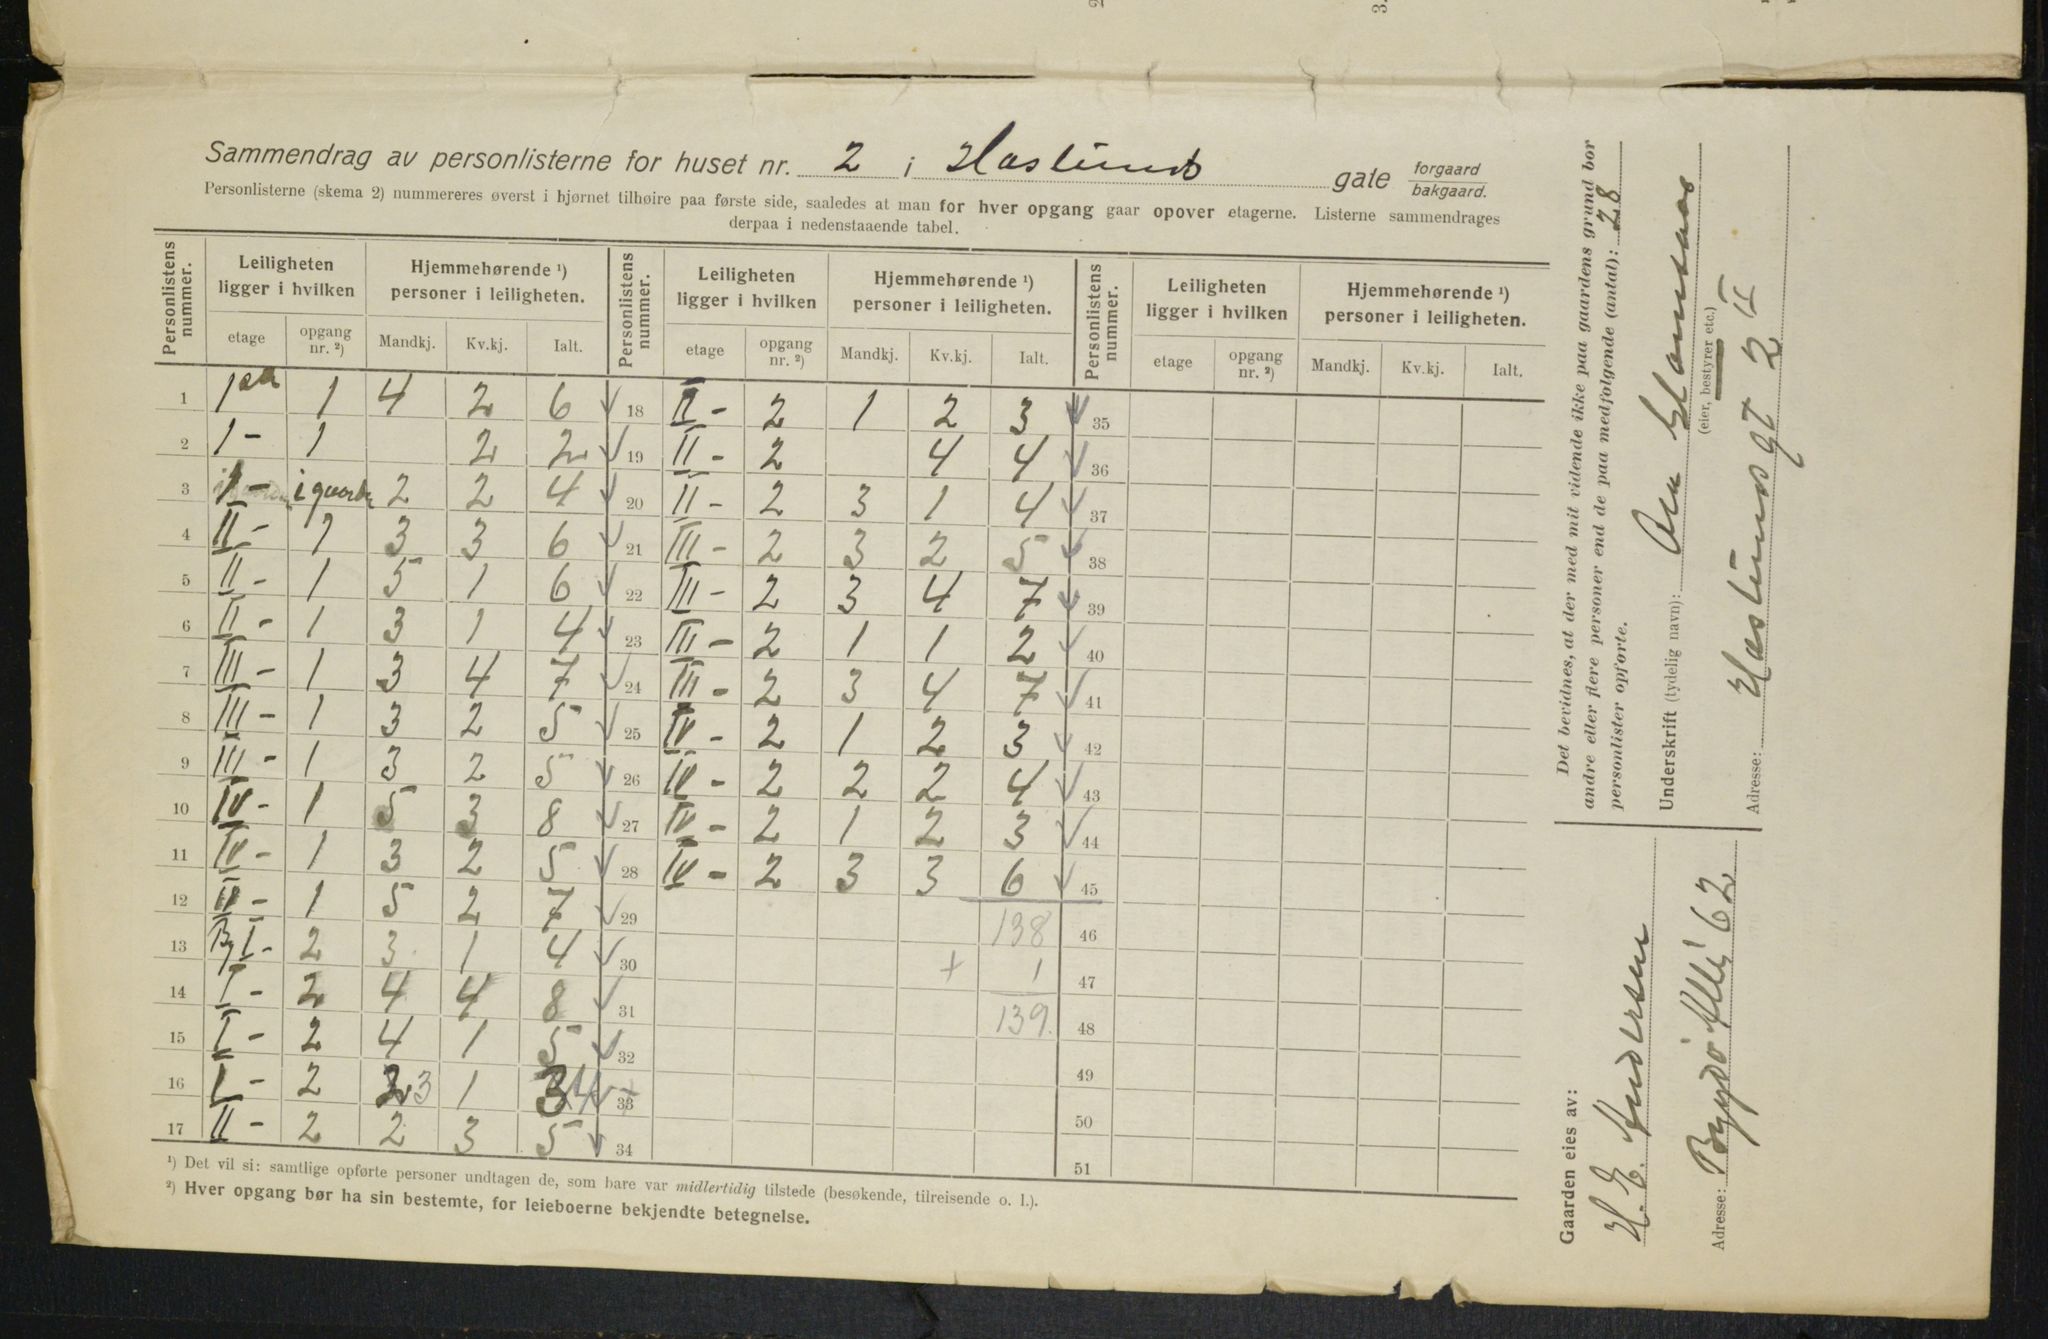 Sammendrag av personlisterne for huset nr. 2 i Haslunds gate forgaard bakgaard.
Personlisterne (skema 2) nummereres øverst i hjørnet tilhøire paa første side, saaledes at man for hver opgang gaar opover etagerne. Listerne sammendrages
derpaa i nedenstaaende tabel.
Personlistens nummer. Leiligheten ligger i hvilken Hjemmehørende ¹) personer i leiligheten. Personlistens nummer. Leiligheten ligger i hvilken Hjemmehørende ¹) personer i leiligheten. Personlistens nummer. Leiligheten ligger i hvilken Hjemmehørende ¹) personer i leiligheten.
etage opgang nr. ²) Mandkj. Kv.kj. Ialt. etage opgang nr. ²) Mandkj. Kv.kj. Ialt. etage opgang nr. ²) Mandkj. Kv.kj. Ialt.
1 1 4 2 6 18 II - 2 1 2 3 35
2 1 - 1 2 2 19 II - 2 4 4 36
3 1 - 2 2 4 20 II - 2 3 1 4 37
4 II - 1 3 3 6 21 III - 2 3 2 5 38
5 II - 1 5 1 6 22 III - 2 3 4 7 39
6 II - 1 3 1 4 23 III - 2 1 1 2 40
7 III - 1 3 4 7 24 III - 2 3 4 7 41
8 III - 1 3 2 5 25 IV - 2 1 2 3 42
9 III - 1 3 2 5 26 IV - 2 2 2 4 43
10 IV - 1 5 3 8 27 IV - 2 1 2 3 44
11 IV - 1 3 2 5 28 IV - 2 3 3 6 45
12 IV - 1 5 2 7 29 138 46
13 I - 2 3 1 4 30 + 1 47
14 I - 2 4 4 8 31 139. 48
15 I - 2 4 1 5 32 49
16 I - 2 2 3 1 3 4 33 50
17 II - 2 2 3 5 34 51
¹) Det vil si: samtlige opførte personer undtagen de, som bare var midlertidig tilstede (besøkende, tilreisende o. l.).
²) Hver opgang bør ha sin bestemte, for leieboerne bekjendte betegnelse.
Det bevidnes, at der med mit vidende ikke paa gaardens grund bor
andre eller flere personer end de paa medfølgende (antal): 28
personlister opførte.
Underskrift (tydelig navn):
(eier, bestyrer etc.)
Adresse: Haslunds gt 2 II
Gaarden eies av:
H. E. Andersen
Adresse: Bygdø Allé 62